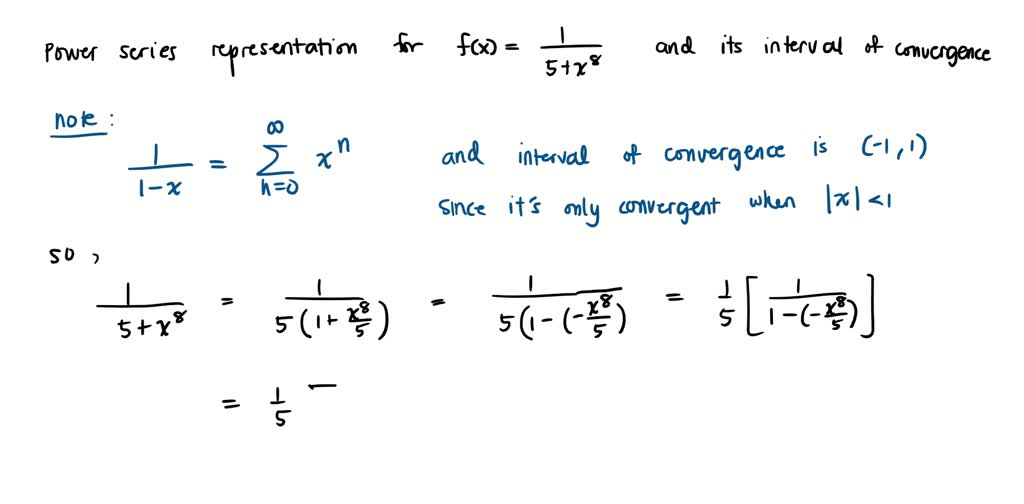 Power series representation for f(x) = 1/(5+x^8) and its interval of convergence
note:
1/(1-x) = ∑_{n=0}^{∞} x^n and interval of convergence is (-1,1)
since it's only convergent when |x|<1
so,
1/(5+x^8) = 1/(5(1+x^8/5)) = 1/(5(1-(-x^8/5))) = 1/5 [1/(1-(-x^8/5))]
= 1/5